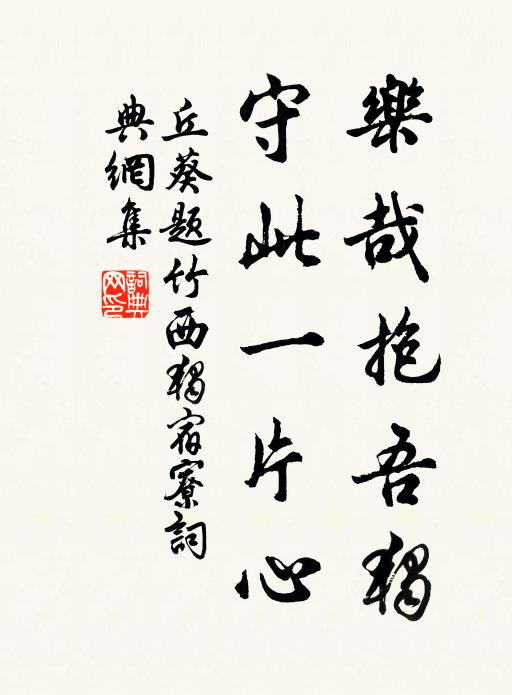 樂哉抱吾獨
守此一片心
丘葵題竹西獨宿寮詞
典網集
詞典
网印